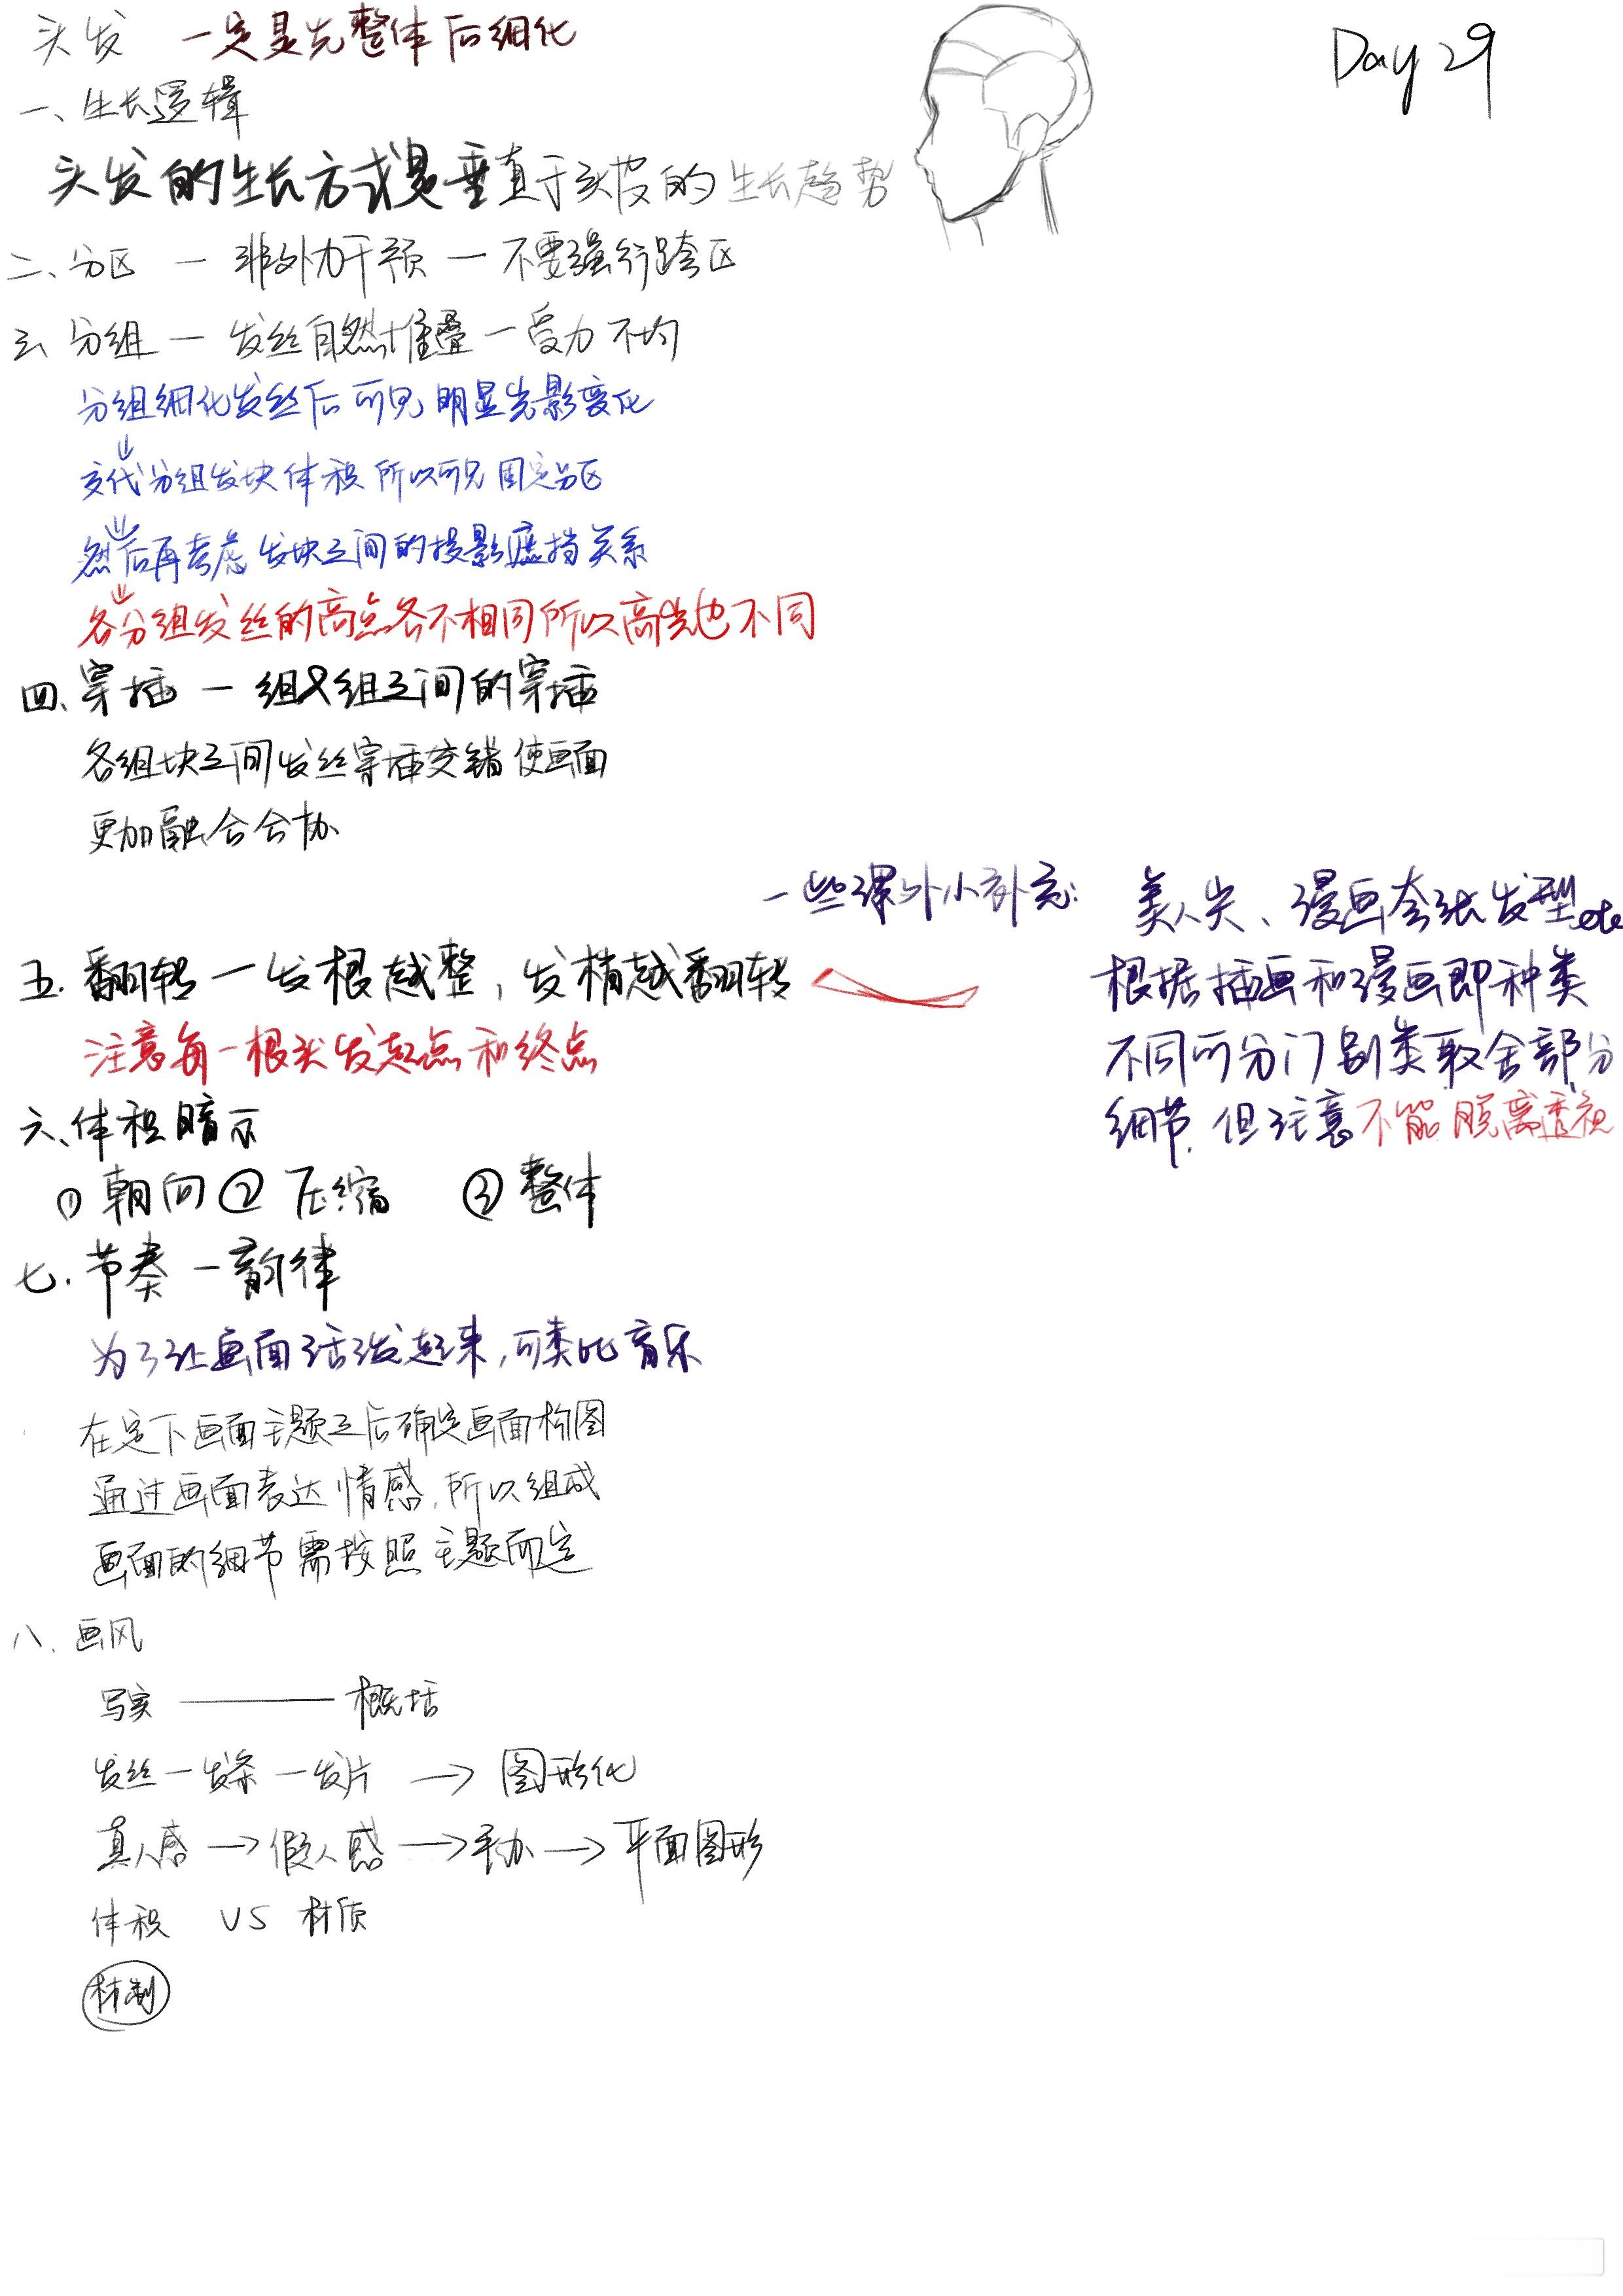 Day 29
头发 一定是先整体后细化
一、生长逻辑
头发的生长方式是垂直于头皮的生长趋势
二、分区 — 非外力干预 — 不要强行跨区
三、分组 — 发丝自然堆叠 — 受力不均
分组细化发丝后可见明显光影变化
交代分组发块体积 所以可见固定分区
然后再考虑发块之间的投影遮挡关系
各分组发丝的高点各不相同所以高光也不同
四、穿插 — 组&组之间的穿插
各组块之间发丝穿插交错使画面
更加融合合协
五.翻转 — 发根越整,发梢越翻转
注意每一根头发起点和终点
六、体积暗示
① 朝向 ② 压缩 ③ 整体
七.节奏 — 韵律
为了让画面活泼起来,可类比音乐
在定下画面主题之后确定画面构图
通过画面表达情感,所以组成
画面的细节需按照主题而定
八.画风
写实 —— 概括
发丝 — 发条 — 发片 → 图形化
真人感 → 假人感 → 手办 → 平面图形
体积 VS 材质
一些课外小补充: 美人尖、漫画夸张发型etc
根据插画和漫画即种类
不同可分门别类取舍部分
细节.但注意不能脱离透视